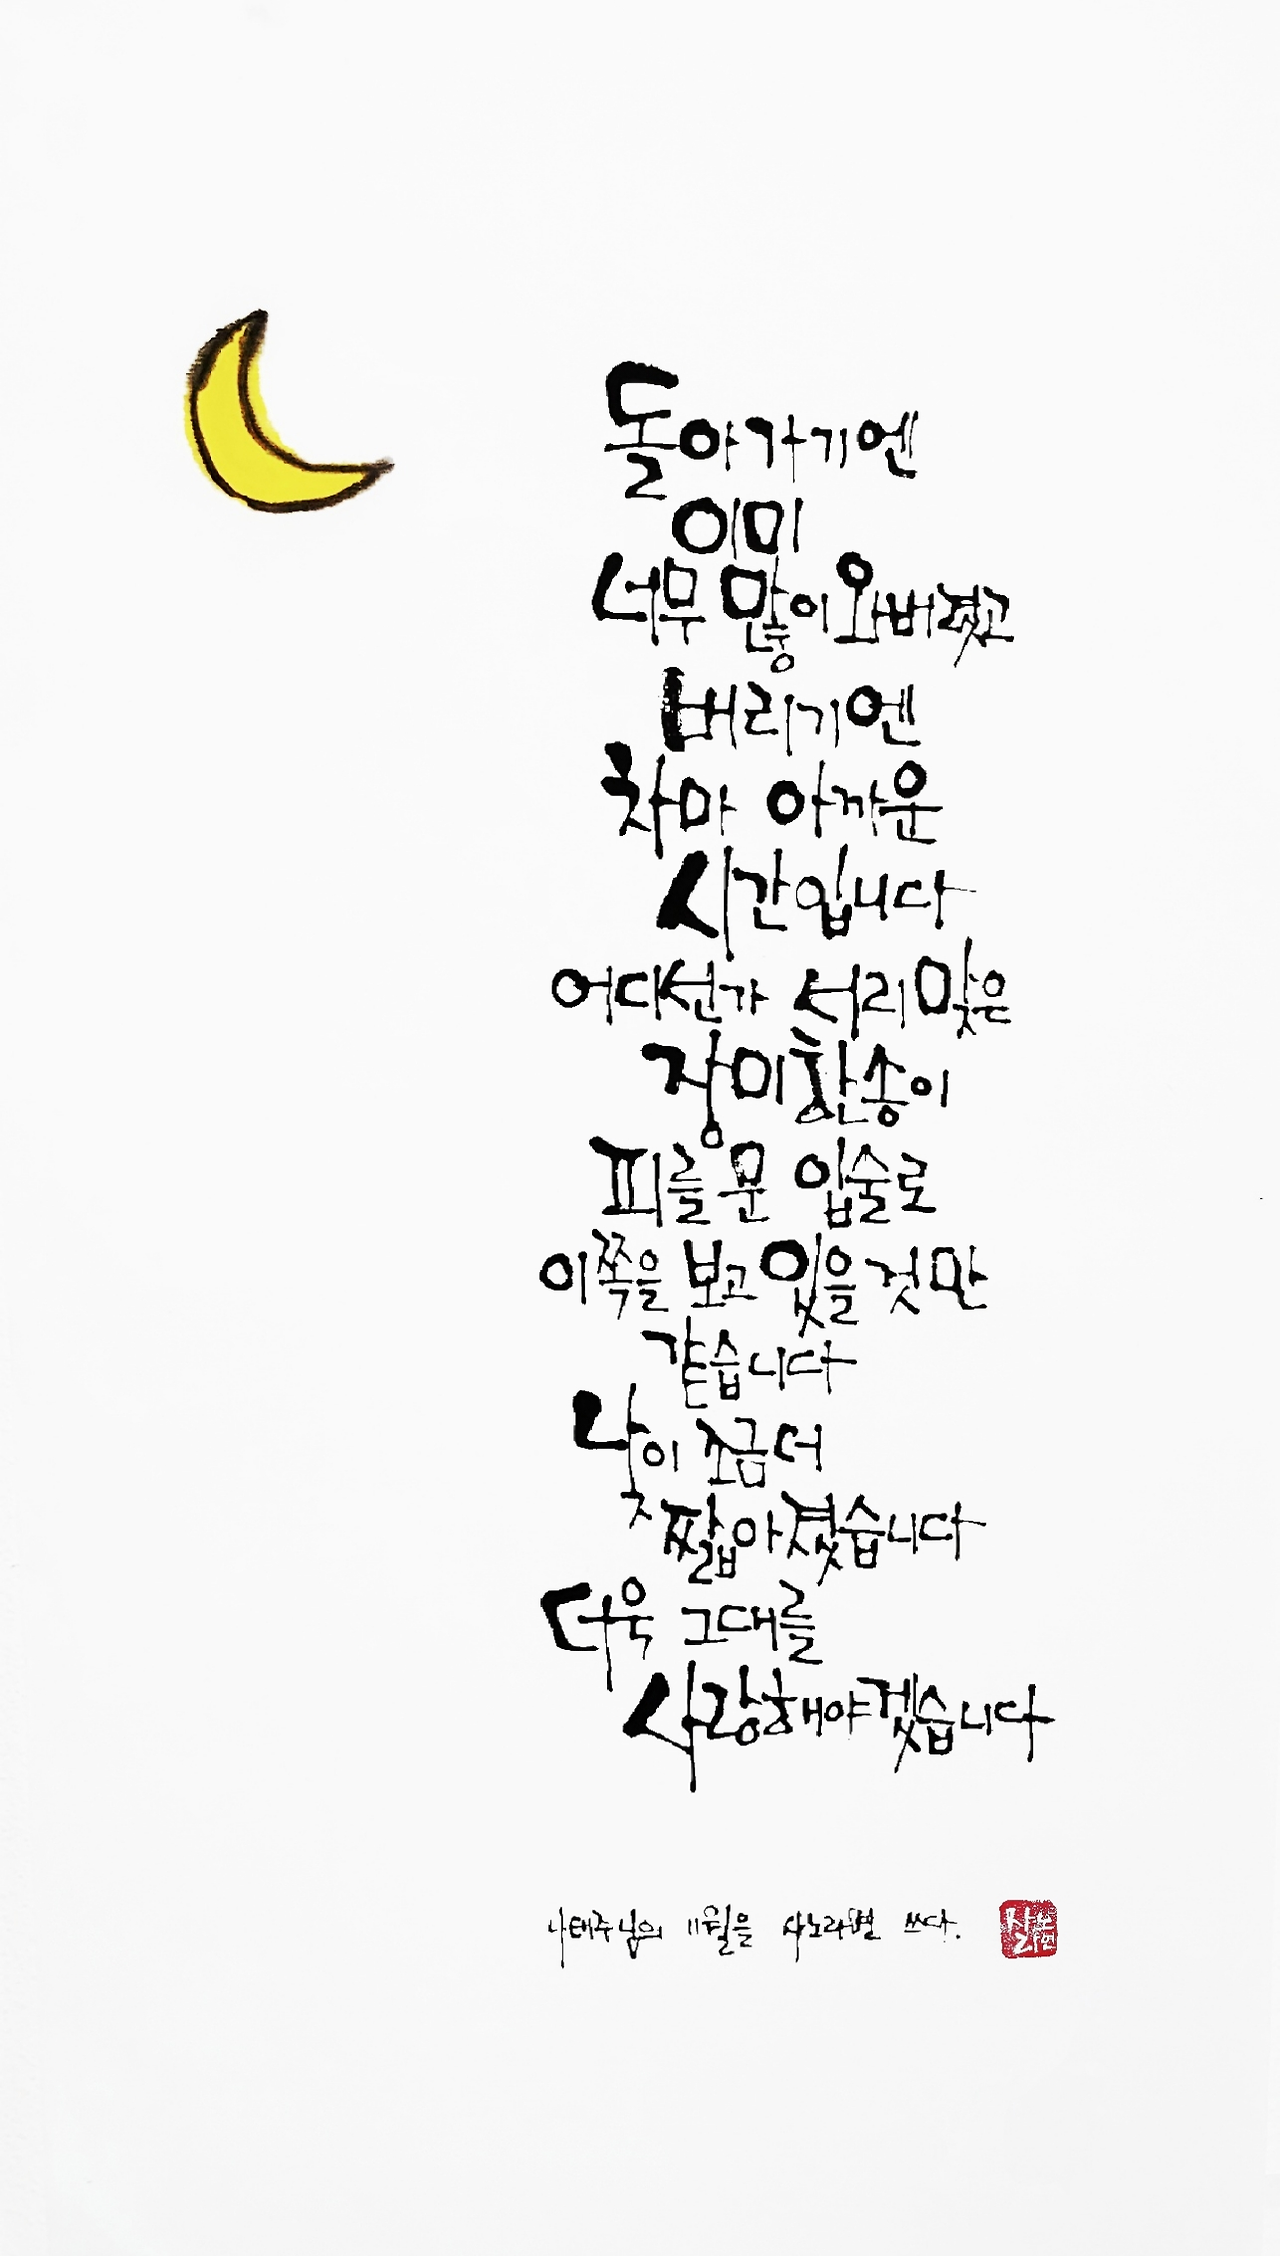 돌아가기엔
이미
너무 많이 와버렸고
버리기엔
차마 아까운
시간입니다
어디선가 서리 맞은
장미 한 송이
피를 문 입술로
이쪽을 보고 있을 것만
같습니다
낮이 조금 더
짧아졌습니다
더욱 그대를
사랑해야겠습니다
나태주님의 11월을 사노라면 쓰다.